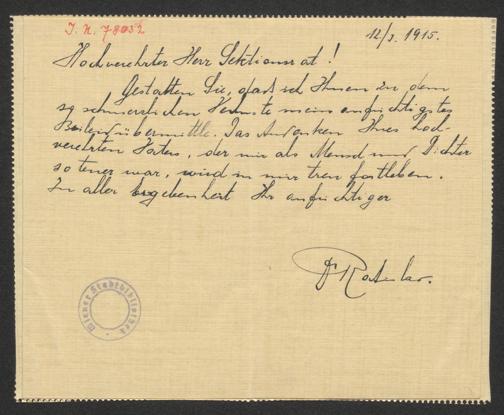 I. N. 78032
12/3. 1915.
Hochverehrter Herr Sektionsrat!
Gestatten Sie, daß ich Ihnen zu dem
so schmerzlichen Verluste mein aufrichtigstes
Beileid übermittle. Das Andenken Ihres hoch-
verehrten Vaters, der mir als Mensch und Dichter
so teuer war, wird in mir treu fortleben.
In aller Ergebenheit Ihr aufrichtiger
Dr
Wiener Stadtbibliothek